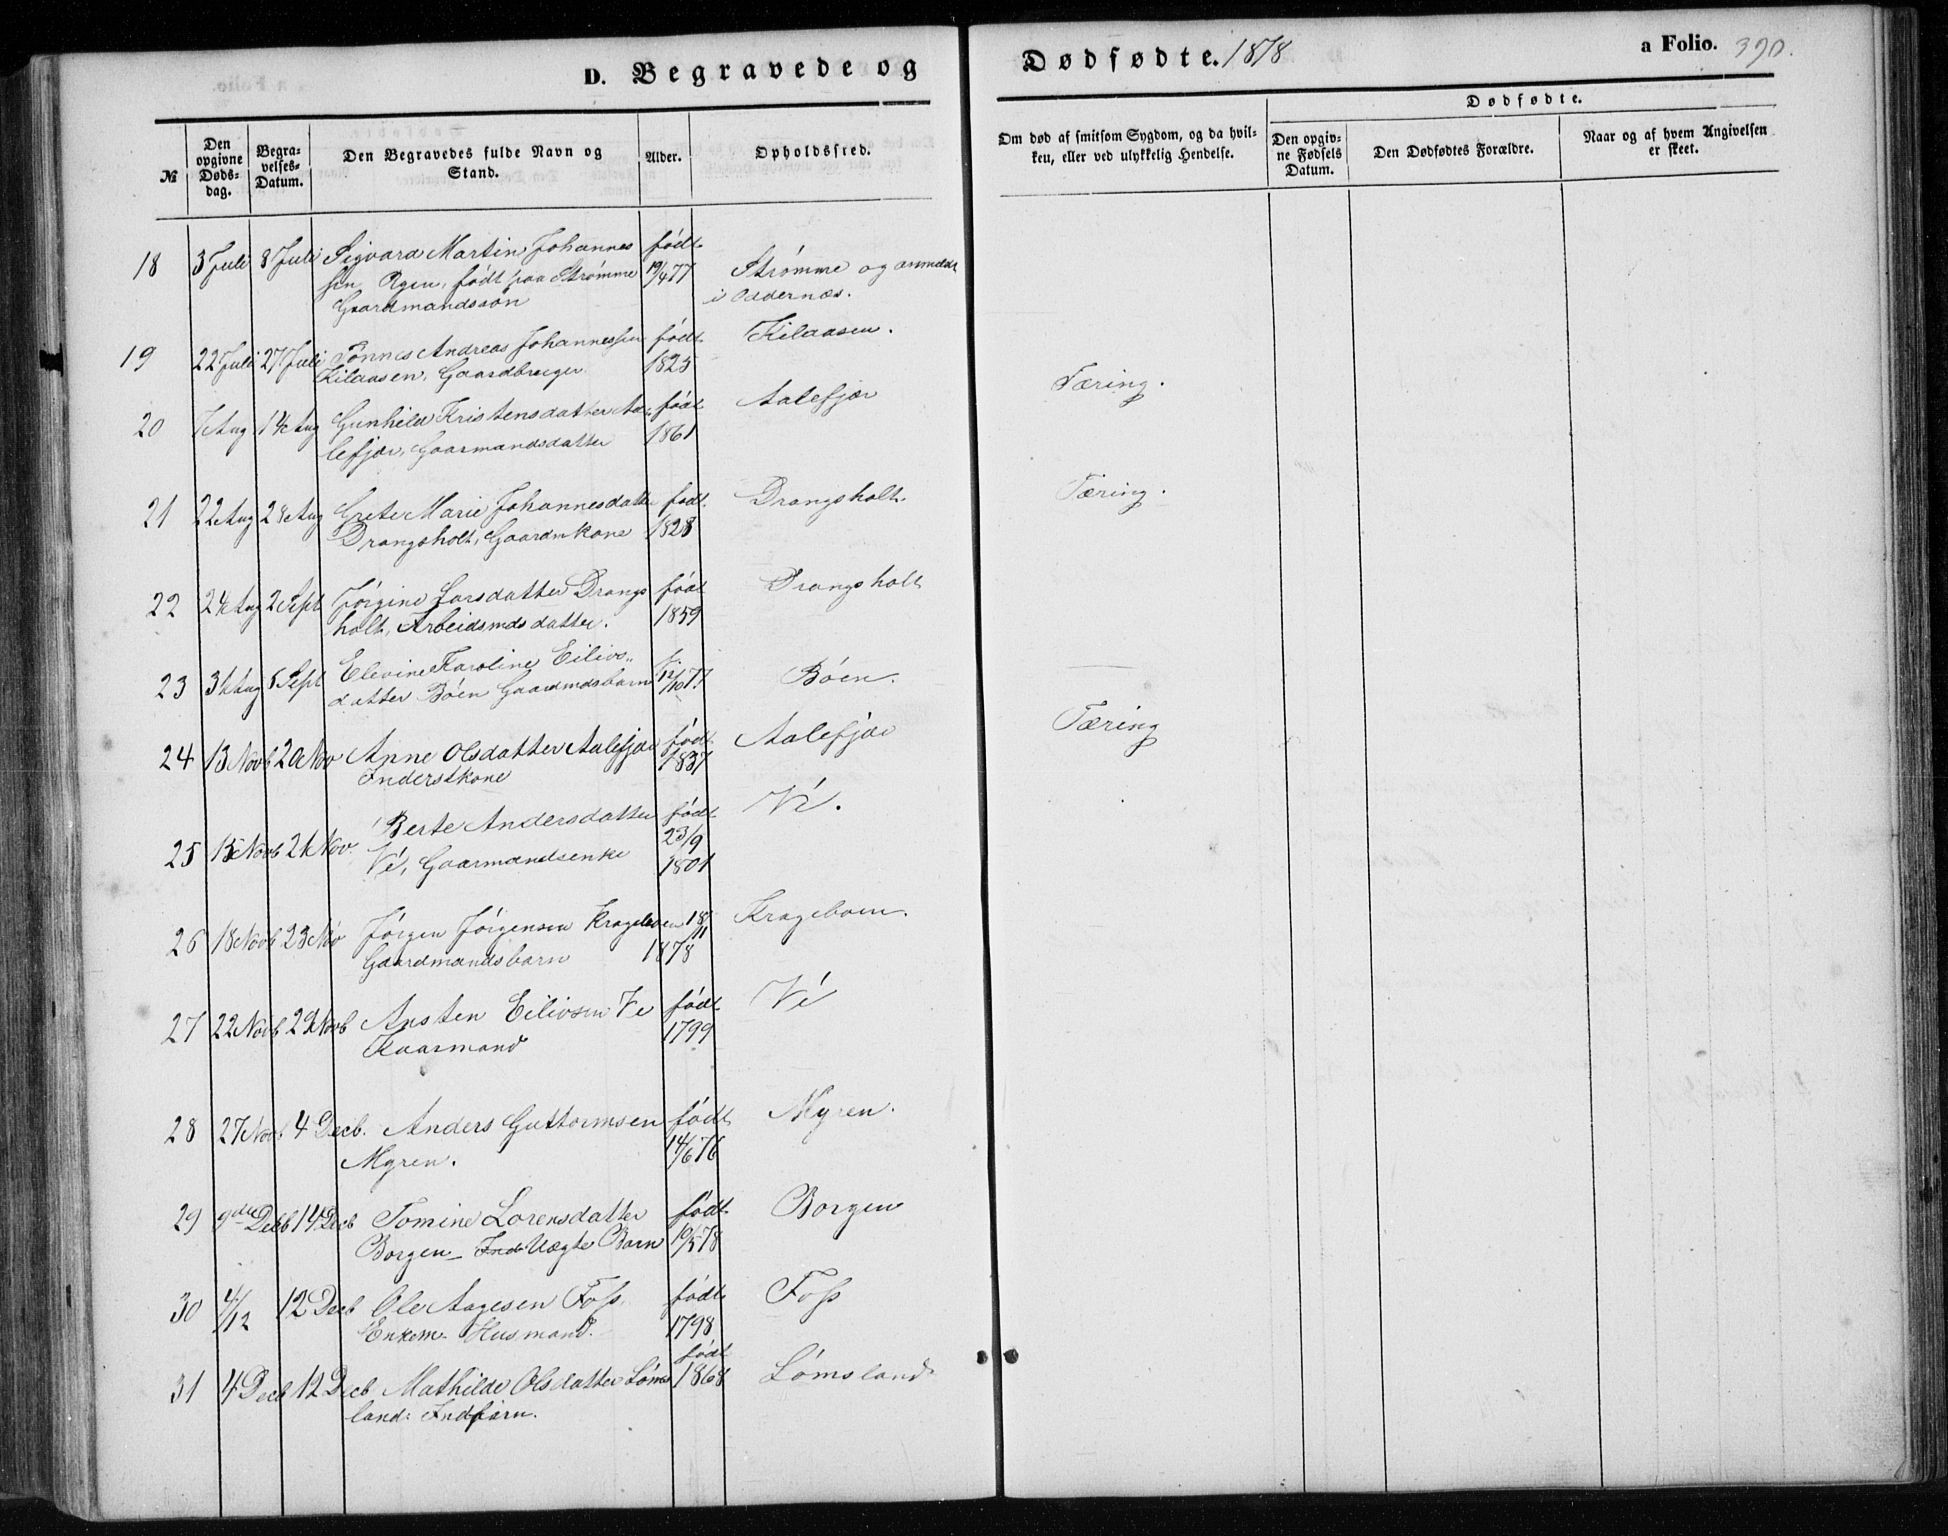 D. Begravede og Dødfødte. 1878
a Folio. 390.
№
Den opgivne Døds-dag.
Begra-velses-Datum.
Den Begravedes fulde Navn og Stand.
Alder.
Opholdssted.
Om død af smitsom Sygdom, og da hvil-ken, eller ved ulykkelig Hendelse.
Dødfødte.
Den opgiv-ne Fødsels Datum.
Den Dødfødtes Forældre.
Naar og af hvem Angivelsen er skeet.
18 3 Juli 8 Juli Sigvard Martin Johannes født Strømme og anmeldt
sen Rgen, født paa Strømme 19/4 77 i Oddernæs.
Gaardmandssøn
19 22 Juli 27 Juli Tönnes Andreas Johannessen født Kilaasen.
Kilaasen, Gaardbruger 1825
20 7 Aug 14 Aug Gunhild Kristensdatter Aa- født Aalefjær Tæring.
lefjær, Gaarmandsdatter 1861
21 22 Aug 28 Aug Grete Marie Johannesdatter født. Drangsholt Tæring.
Drangsholt, Gaardmkone 1828
22 24 Aug 2 Sept Jørgine Larsdatter Drangs født Drangsholt
holt, Arbeidsmdsdatter. 1859
23 31 Aug 5 Sept Elevine Karoline Eilivs- Böen.
datter Böen Gaardmdsbarn 12/10 77
24 13 Novb 20 Nov Anne Olsdatter Aalefjær født Aalefjær Tæring
Inderstkone 1837
25 15 Novb 21 Nov. Berte Andersdatter født Vé.
Vé, Gaarmandsenke 23/9 1801
26 18 Novb 23 Nov Jörgen Jörgensen Krageboen 18/11 Krageboen.
Gaardmandsbarn 1878
27 22 Novb 29 Novb Ansten Eilivsen Ve født Vé
Kaarmand 1799
28 27 Novb 4 Decb. Anders Guttormsen født Myren.
Myren. 14/6 76
29 9de Decb 14 Decb Tomine Lorensdatter født Borgen
Borgen Uægte Barn 19/5 78
30 4/12 12 Decb Ole Aagesen Foss. født Foss
Enkem. Husmand. 1798
31 4 Decb 12 Decb Mathilde Olsdatter Løms født 1868 Lømsland
land: